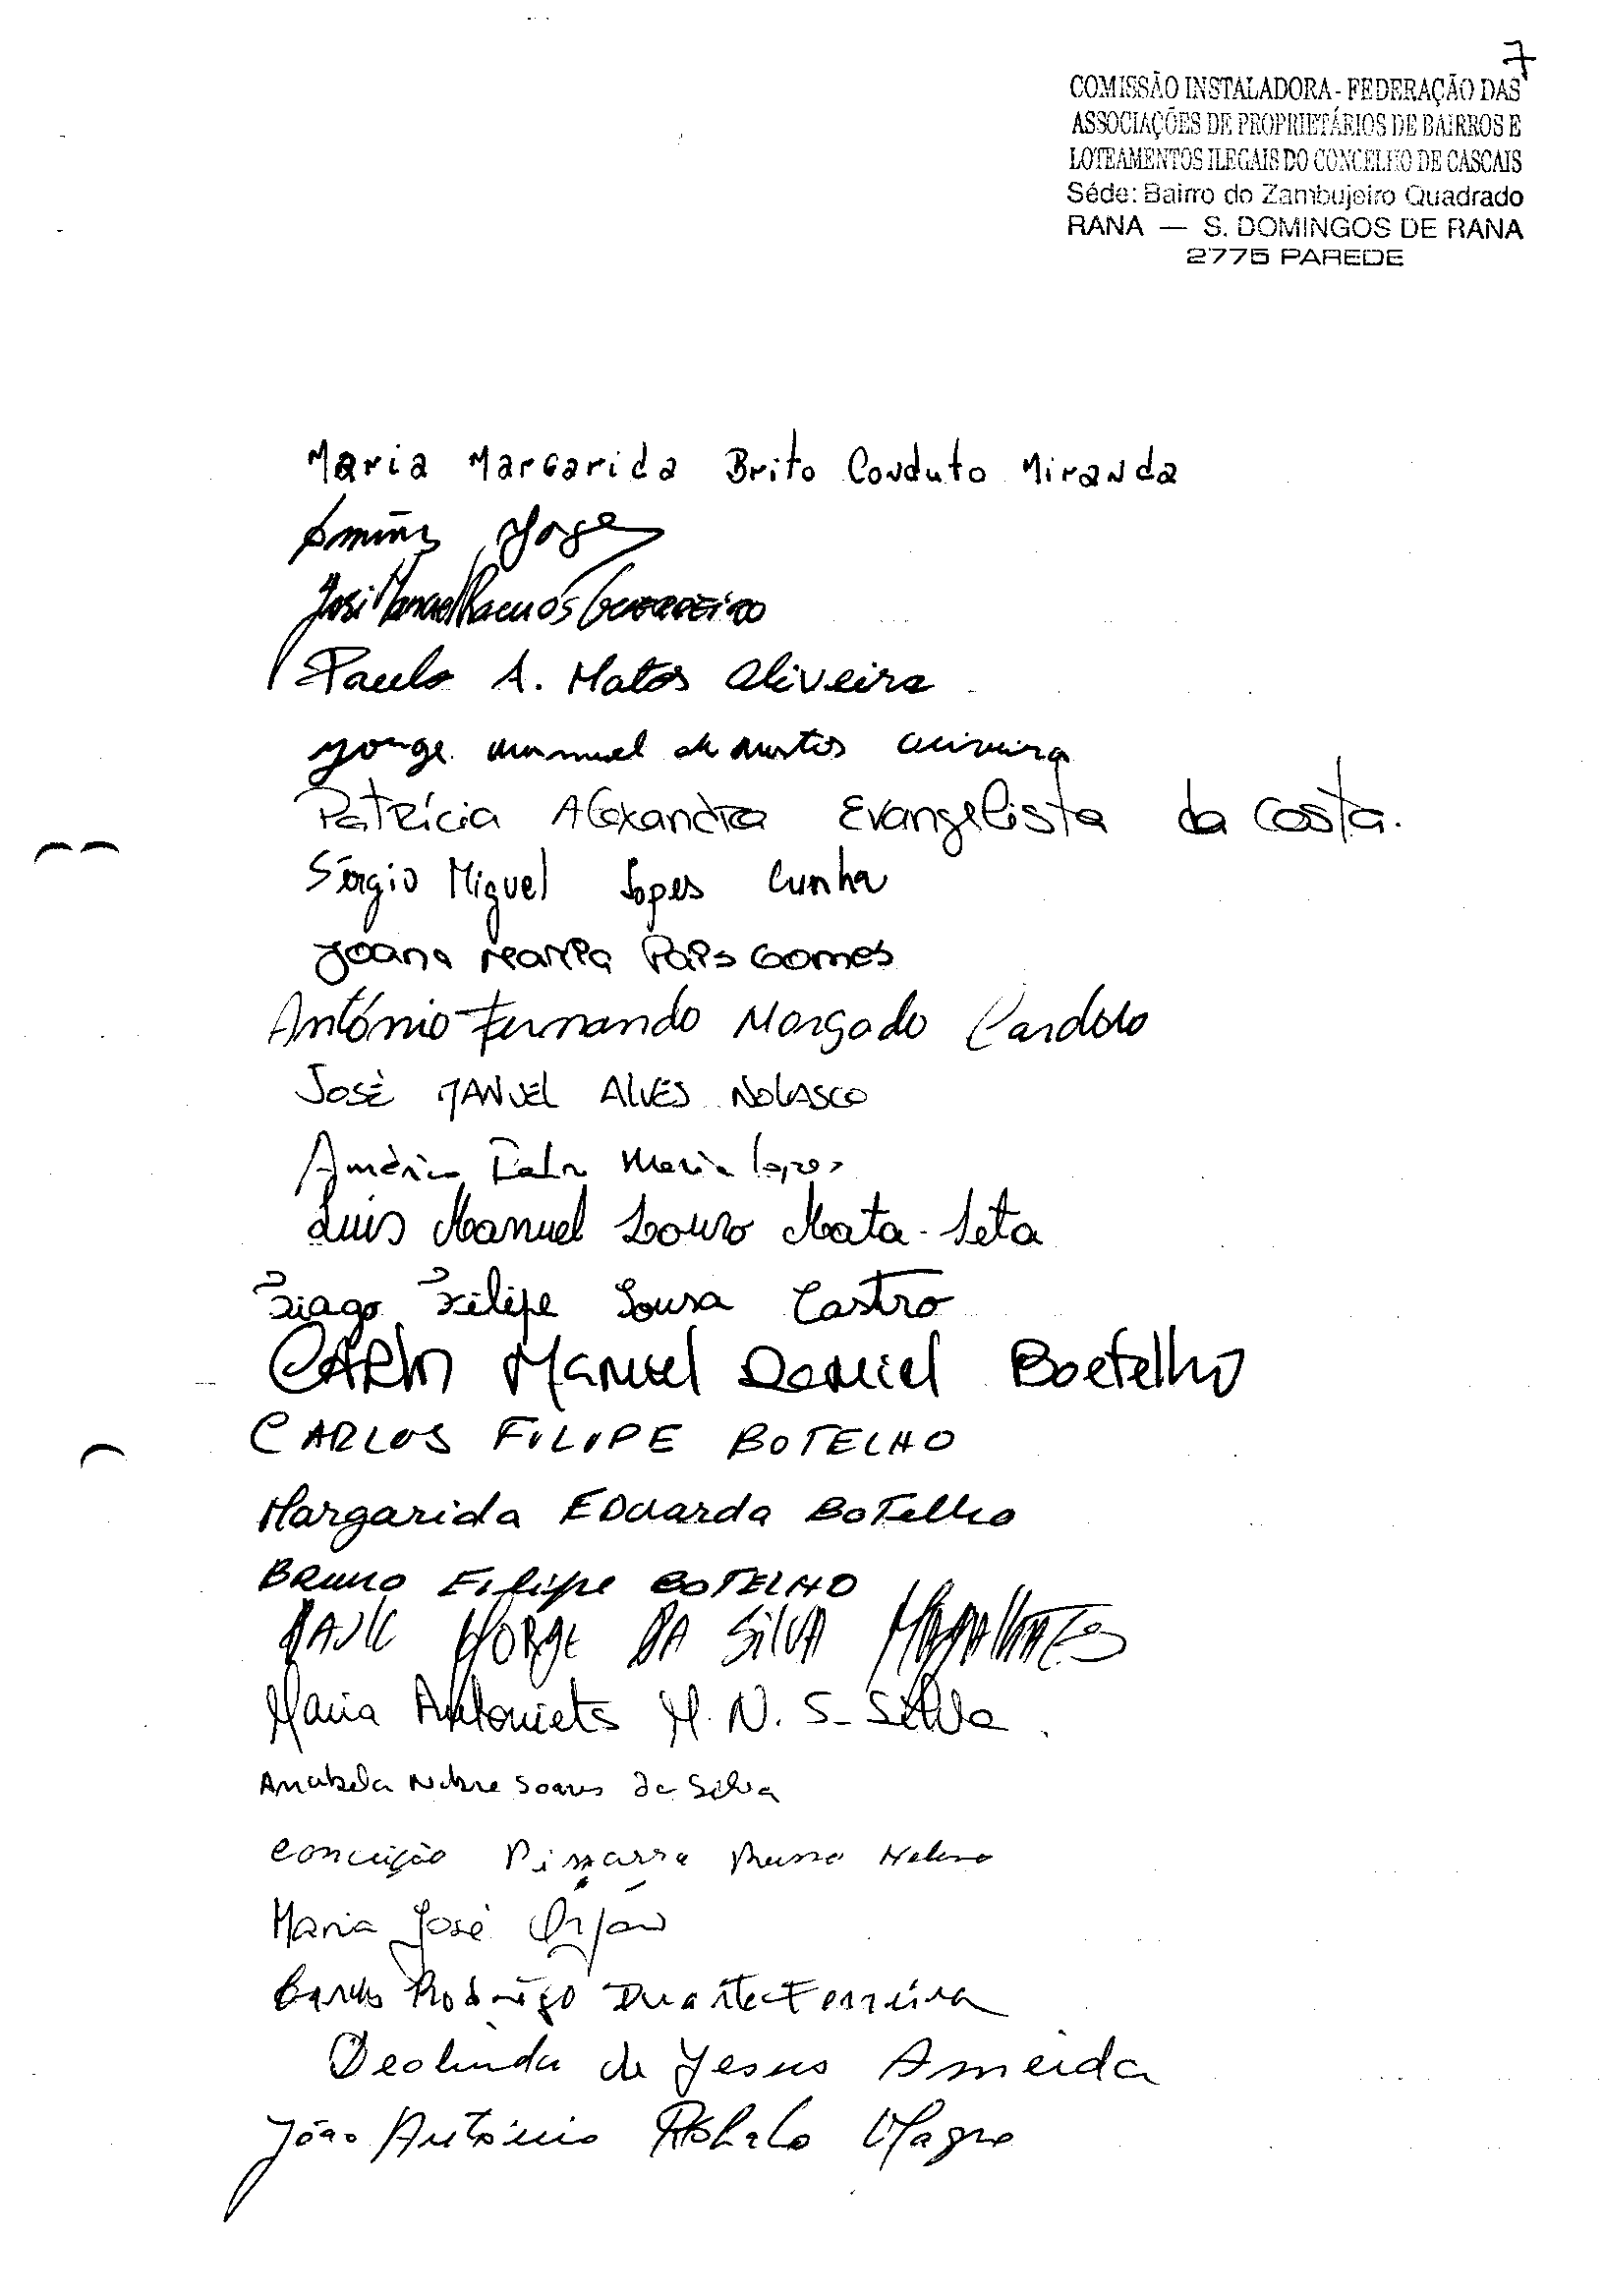 7
COMISSÃO INSTALADORA - FEDERAÇÃO DAS
ASSOCIAÇÕES DE PROPRIETÁRIOS DE BAIRROS E
LOTEAMENTOS ILEGAIS DO CONCELHO DE CASCAIS
Séde: Bairro do Zambujeiro Quadrado
RANA — S. DOMINGOS DE RANA
2775 PAREDE
Maria Margarida Brito Conduto Miranda
Jorge
José Manuel Ramos Guerreiro
Paulo A. Matos Oliveira
Jorge manuel de matos oliveira
Patrícia Alexandra Evangelista da Costa.
Sérgio Miguel Lopes Cunha
Joana Maria Pais Gomes
António Fernando Morgado Cardoso
José MANUEL ALVES NOLASCO
Américo Maria Lopes
Luis Manuel Louro Mata-Seta
Tiago Filipe Sousa Castro
CARlos Manuel Daniel Boetelho
CARLOS FILIPE BOTELHO
Margarida EDuarda BoTelho
BRUNO Filipe BOTELHO
PAUL JORGE DA SilVA MAGALHÃES
Maria Antonieta M. N. S. Silva
Anabela Nobre Soares da Silva
Conceição Pissarra Russo
Maria José
Carlos Rodrigo Duarte Ferreira
Deolinda de Jesus Ameida
João António Magro